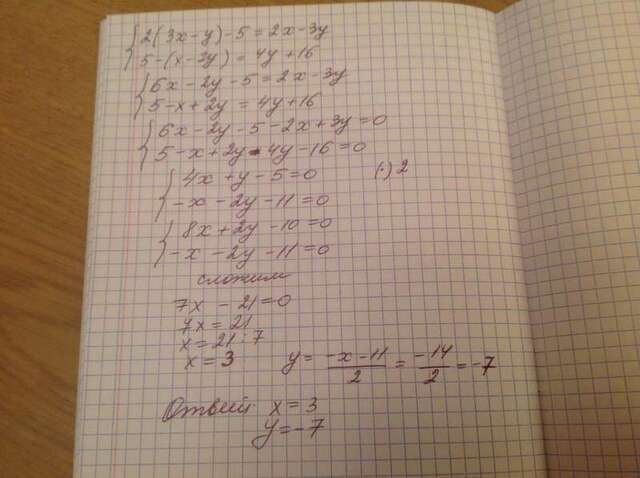 2(3x-y)-5=2x-3y
5-(x-2y)=4y+16
6x-2y-5=2x-3y
5-x+2y=4y+16
6x-2y-5-2x+3y=0
5-x+2y-4y-16=0
4x+y-5=0 (·)2
-x-2y-11=0
8x+2y-10=0
-x-2y-11=0
сложим
7x -21=0
7x=21
x=21:7
x=3 y= \frac{-x-11}{2} = \frac{-14}{2} =-7
Ответ x=3
y=-7